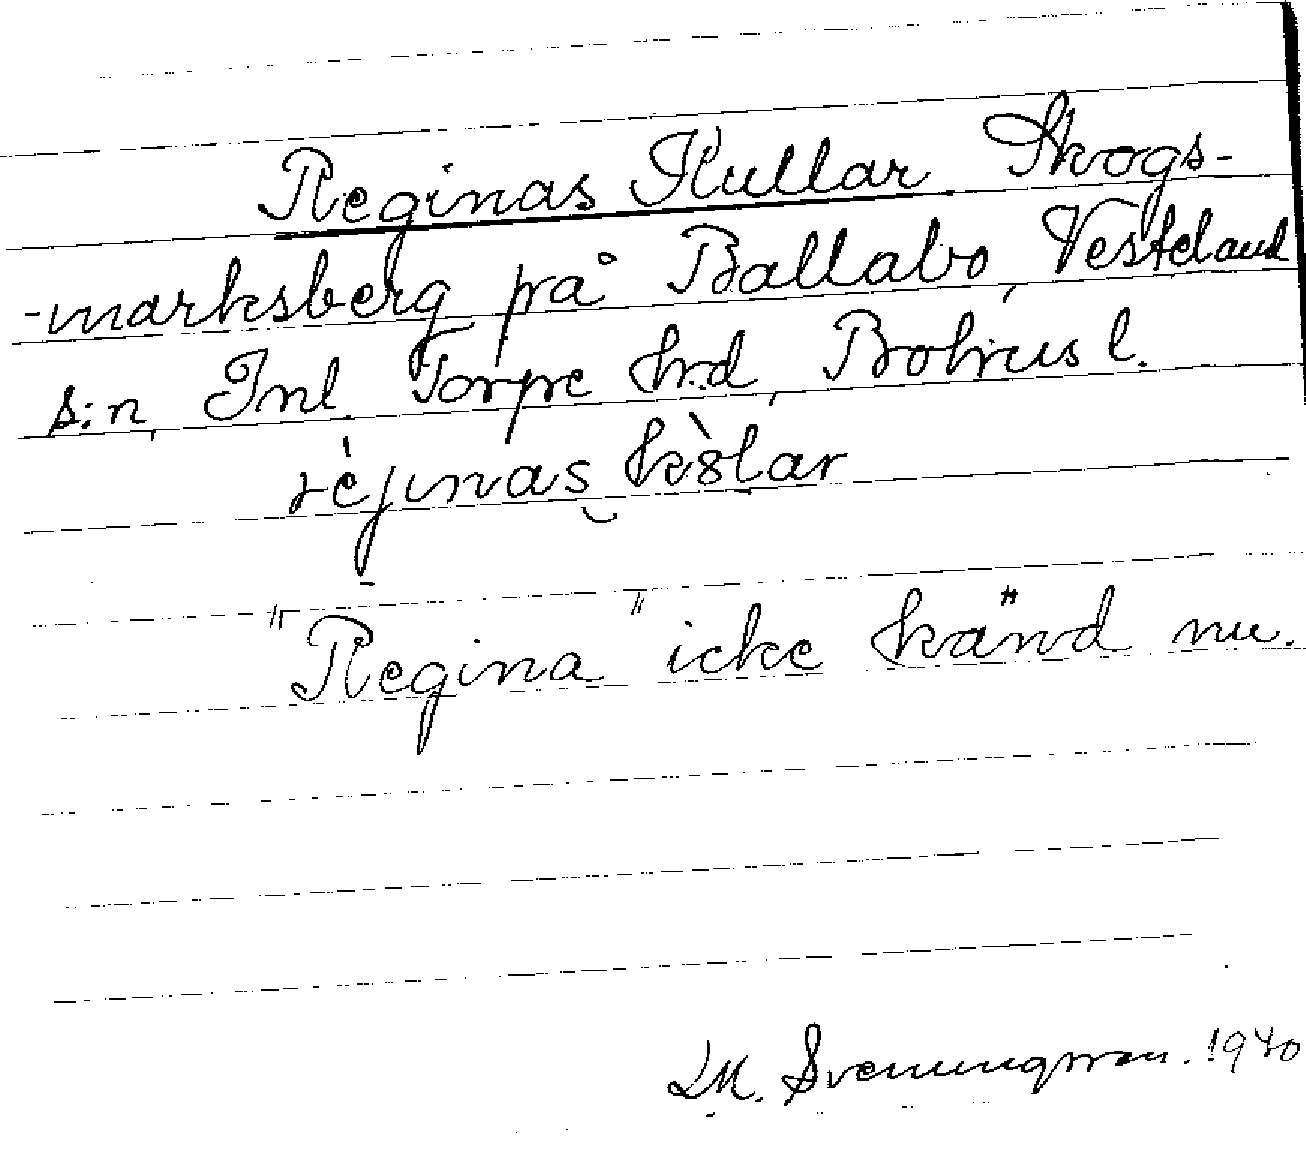 Reginas Kullar Skogs-
-marksberg på Ballabo, Vesteland
s:n, Inl. Torpe hrd, Bohus l.
"Regina" icke känd nu.
M. Svenungsson. 1940